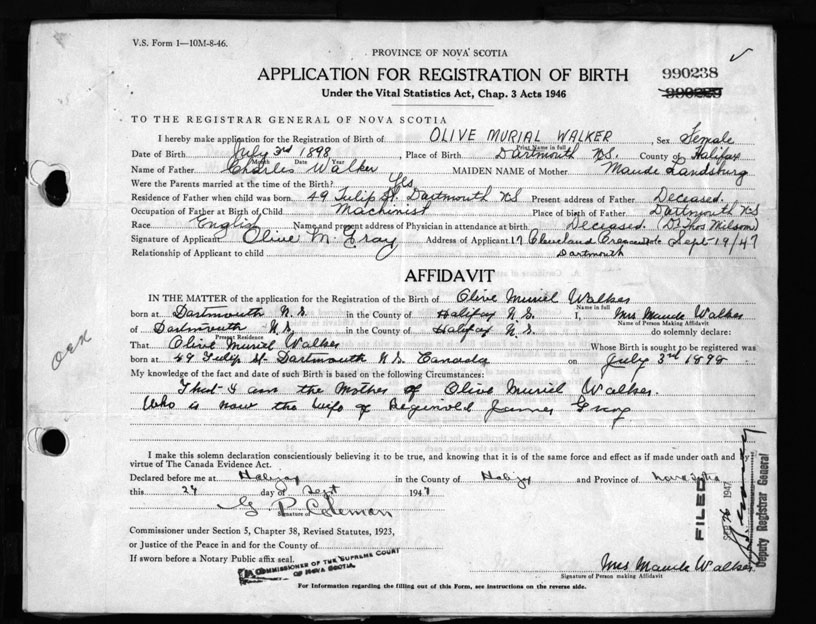 V.S. Form 1—10M-8-46.
PROVINCE OF NOVA SCOTIA
APPLICATION FOR REGISTRATION OF BIRTH 990238
Under the Vital Statistics Act, Chap. 3 Acts 1946 990229
TO THE REGISTRAR GENERAL OF NOVA SCOTIA
I hereby make application for the Registration of Birth of OLIVE MURIAL WALKER, Sex Female
Print Name in full
Date of Birth July 3rd 1898, Place of Birth Dartmouth N.S. County of Halifax
Month Date Year
Name of Father Charles Walker MAIDEN NAME of Mother Maude Landsburg
Were the Parents married at the time of Birth? Yes
Residence of Father when child was born 49 Tulip St. Dartmouth N.S Present address of Father Deceased.
Occupation of Father at Birth of Child Machinist Place of birth of Father Dartmouth N.S
Race English Name and present address of Physician in attendance at birth Deceased. (Dr Thos Milsom)
Signature of Applicant Olive M. Gray Address of Applicant 17 Cleveland Crescent Date Sept 19/47
Relationship of Applicant to child Dartmouth
AFFIDAVIT
IN THE MATTER of the application for the Registration of the Birth of Olive Muriel Walker
Name in full
born at Dartmouth N.S. in the County of Halifax N.S. I, Mrs Maude Walker
Name of Person Making Affidavit
of Dartmouth N.S. in the County of Halifax N.S. do solemnly declare:
Present Residence
That Olive Muriel Walker Whose Birth is sought to be registered was
born at 49 Tulip St. Dartmouth N.S. Canada on July 3rd 1898
My knowledge of the fact and date of such Birth is based on the following Circumstances:
That I am the Mother of Olive Muriel Walker.
Who is now the wife of Reginald James Gray
I make this solemn declaration conscientiously believing it to be true, and knowing that it is of the same force and effect as if made under oath and by
virtue of The Canada Evidence Act.
Declared before me at Halifax in the County of Halifax and Province of Nova Scotia
this 24 day of Sept 1947
G P Coleman
Signature of
Commissioner under Section 5, Chapter 38, Revised Statutes, 1923,
or Justice of the Peace in and for the County of
If sworn before a Notary Public affix seal.
A COMMISSIONER OF THE SUPREME COURT
OF NOVA SCOTIA
Mrs Maude Walker
Signature of Person making Affidavit
For Information regarding the filling out of this Form, see instructions on the reverse side.
FILED
SEP 26 1947
Deputy Registrar General